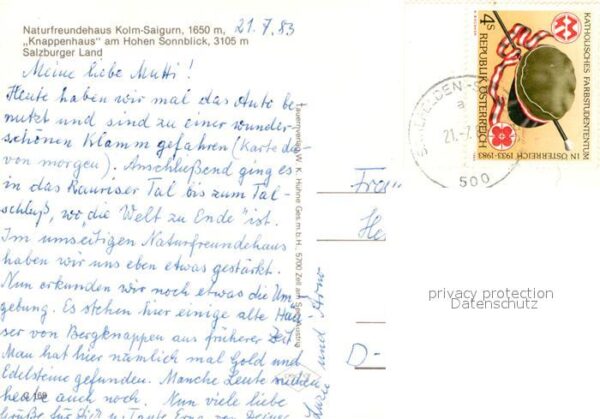 Naturfreundehaus Kolm-Saigurn, 1650 m,
„Knappenhaus" am Hohen Sonnblick, 3105 m
Salzburger Land
21.7.83
Meine liebe Mutti!
Heute haben wir mal das Auto be-
nutzt und sind zu einer wunder-
schönen Klamm gefahren (Karte da-
von morgen). Anschließend ging es
in das Rauriser Tal bis zum Tal-
schluß, wo „die Welt zu Ende" ist.
Im umseitigen Naturfreundehaus
haben wir uns eben etwas gestärkt.
Nun erkunden wir noch etwas die Um-
gebung. Es stehen hier einige alte Häu-
ser von Bergknappen aus früherer Zeit
Man hat hier nämlich mal Gold und
Edelsteine gefunden. Manche Leute suchen
heute auch noch. Nun viele liebe
Grüße für Dich u. Tante Erna von Deiner
und Arno
Tauernverlag W. K. Hühne Ges.m.b.H., 5700 Zell am See
Frau
He
D-
4s
REPUBLIK ÖSTERREICH
KATHOLISCHES FARBSTUDENTENTUM
IN ÖSTERREICH 1933-1983
a
21.-7.
500
privacy protection
Datenschutz